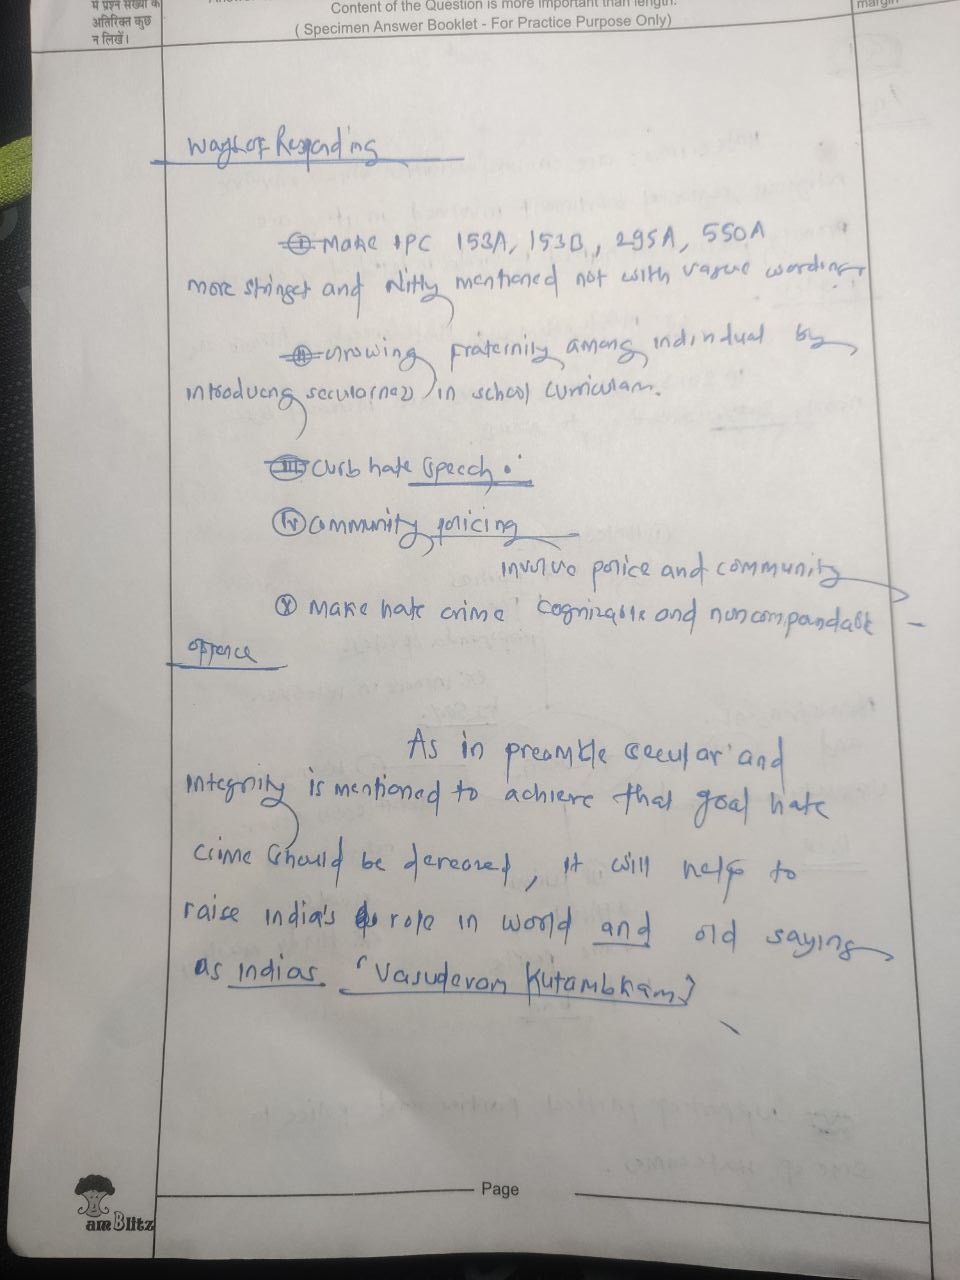 में प्रश्न संख्या के
अतिरिक्त कुछ
न लिखें।
Content of the Question is more important than length.
( Specimen Answer Booklet - For Practice Purpose Only)
margin
Ways of Responding
(I) Make IPC 153A, 153B, 295A, 550A
more stringet and mentioned not with vague wordings
(II) Growing Fraternity among individual by
introducng in school curriculam.
(III) Curb hate speech.
(IV) Community policing
involve police and community
(V) Make hate crime cognizable and noncompandable
offence
As in preamble secular and
integrity is mentioned to achieve that goal hate
crime should be dereased, it will help to
raise India's role in world and old saying
as indias. "Vasudevam Kutambkam"
Page
am Blitz